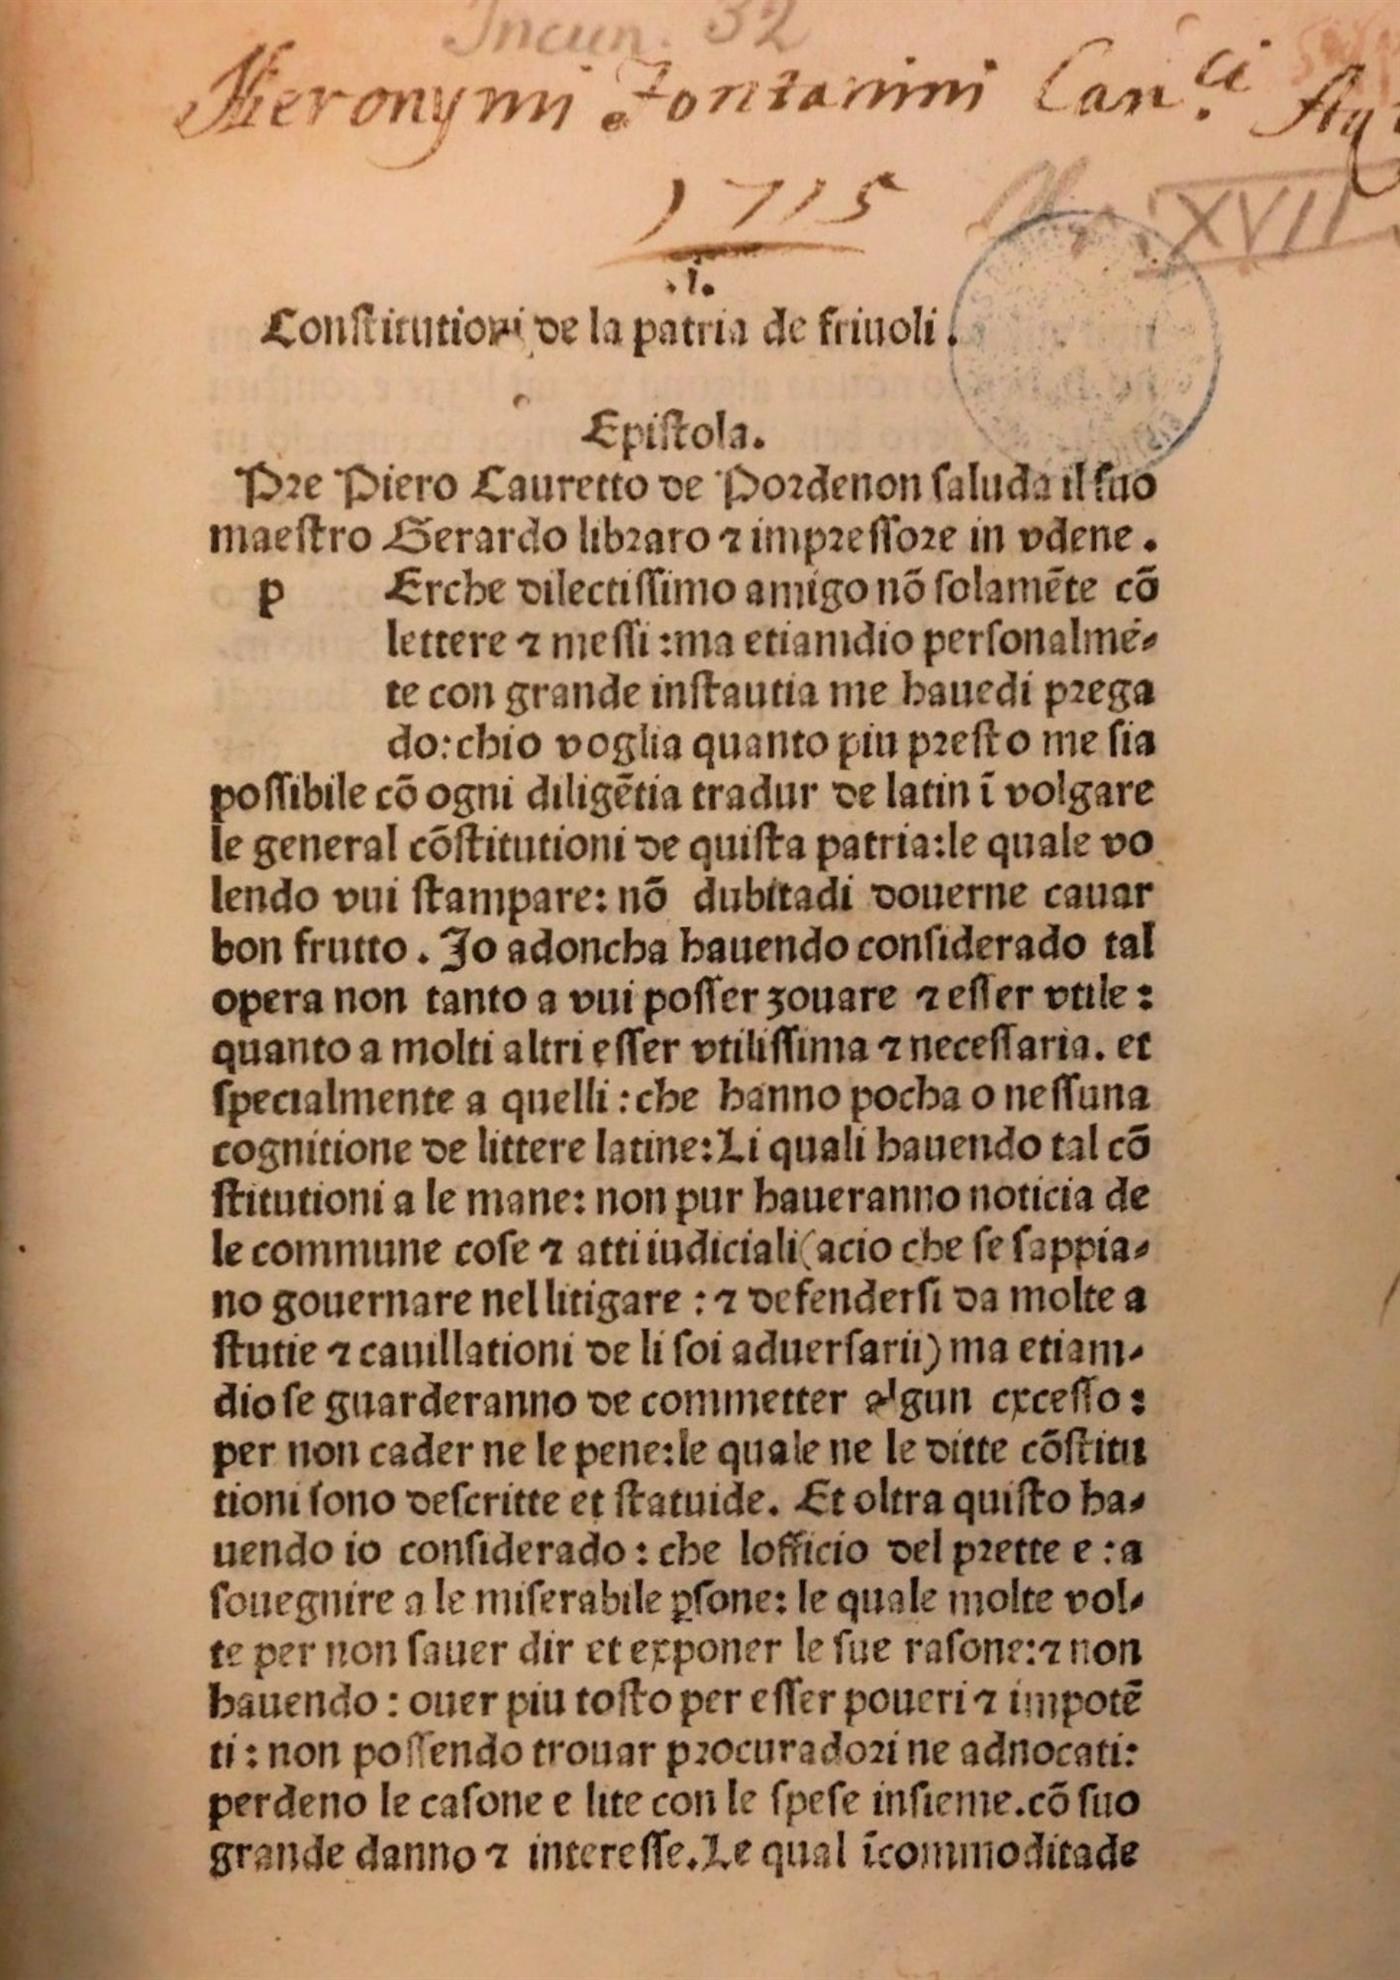 Incun. 32
Hieronymi Fontanini Can.ci
1715
XVII
.I.
Constitutioni de la patria de friuoli.
Epistola.
Pre Piero Lauretto de Pordenon saluda il suo
maestro Gerardo libraro ⁊ impressore in vdene.
p Erche dilectissimo amigo nō solamēte cō
lettere ⁊ messi:ma etiamdio personalmē-
te con grande instautia me hauedi prega
do:chio voglia quanto piu presto me sia
possibile cō ogni diligētia tradur de latin ī volgare
le general cōstitutioni de quista patria:le quale vo
lendo vui stampare: nō dubitadi douerne cauar
bon frutto. Io adoncha hauendo considerado tal
opera non tanto a vui posser zouare ⁊ esser vtile:
quanto a molti altri esser vtilissima ⁊ necessaria. et
specialmente a quelli:che hanno pocha o nessuna
cognitione de littere latine:Li quali hauendo tal cō
stitutioni a le mane: non pur haueranno noticia de
le commune cose ⁊ atti iudiciali(acio che se sappia-
no gouernare nel litigare:⁊ defendersi da molte a
stutie ⁊ cauillationi de li soi aduersarii)ma etiam-
dio se guarderanno de commetter algun excesso:
per non cader ne le pene:le quale ne le ditte cōstitu
tioni sono descritte et statuide. Et oltra quisto ha-
uendo io considerado: che lofficio del prette e:a
souegnire a le miserabile ꝑsone: le quale molte vol-
te per non sauer dir et exponer le sue rasone:⁊ non
hauendo: ouer piu tosto per esser poueri ⁊ impotē
ti: non possendo trouar procuradori ne adnocati:
perdeno le casone e lite con le spese insieme.cō suo
grande danno ⁊ interesse.Le qual īcommoditade